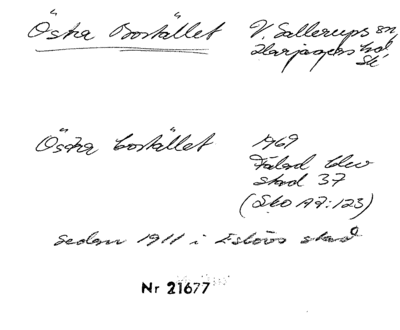 Östra Bostället V. Sallerups sn,
Harjagers hd
Sk
Östra bostället 1969
Fålad blev
stad 37
(SkO A2:123)
sedan 1911 i Eslövs stad
Nr 21677